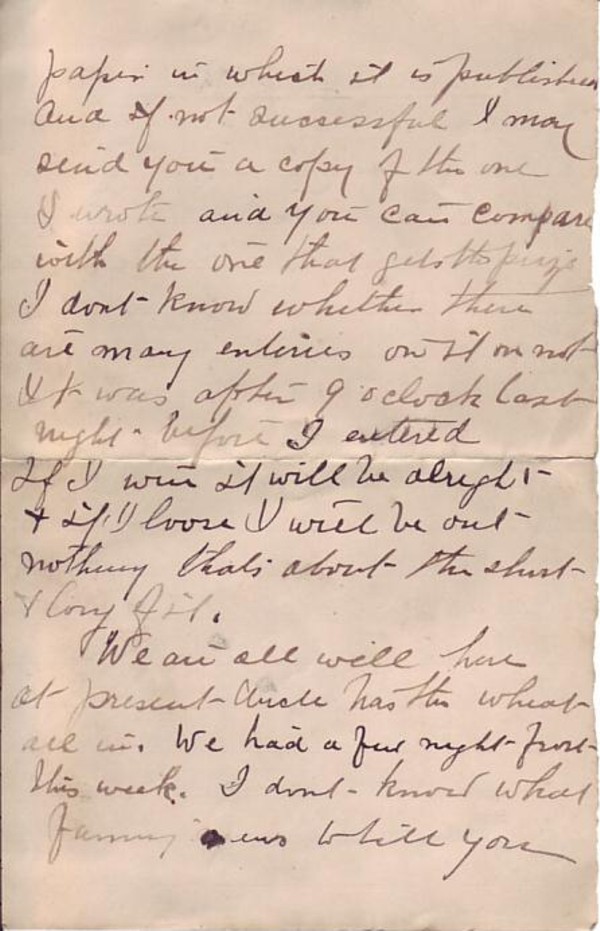 paper in which it is published
and if not successful I may
send you a copy of the one
I wrote and you can compare
with the one that gets the prize
I dont know whether there
are many enteries on it or not
It was after 9 oclock last
night before I entered
If I win it will be alright
+ if I loose I will be out
nothing thats about the short
+ long of it.
We are all well here
at present Uncle has the wheat
all in. We had a few night frost
this week. I dont know what
news to tell you